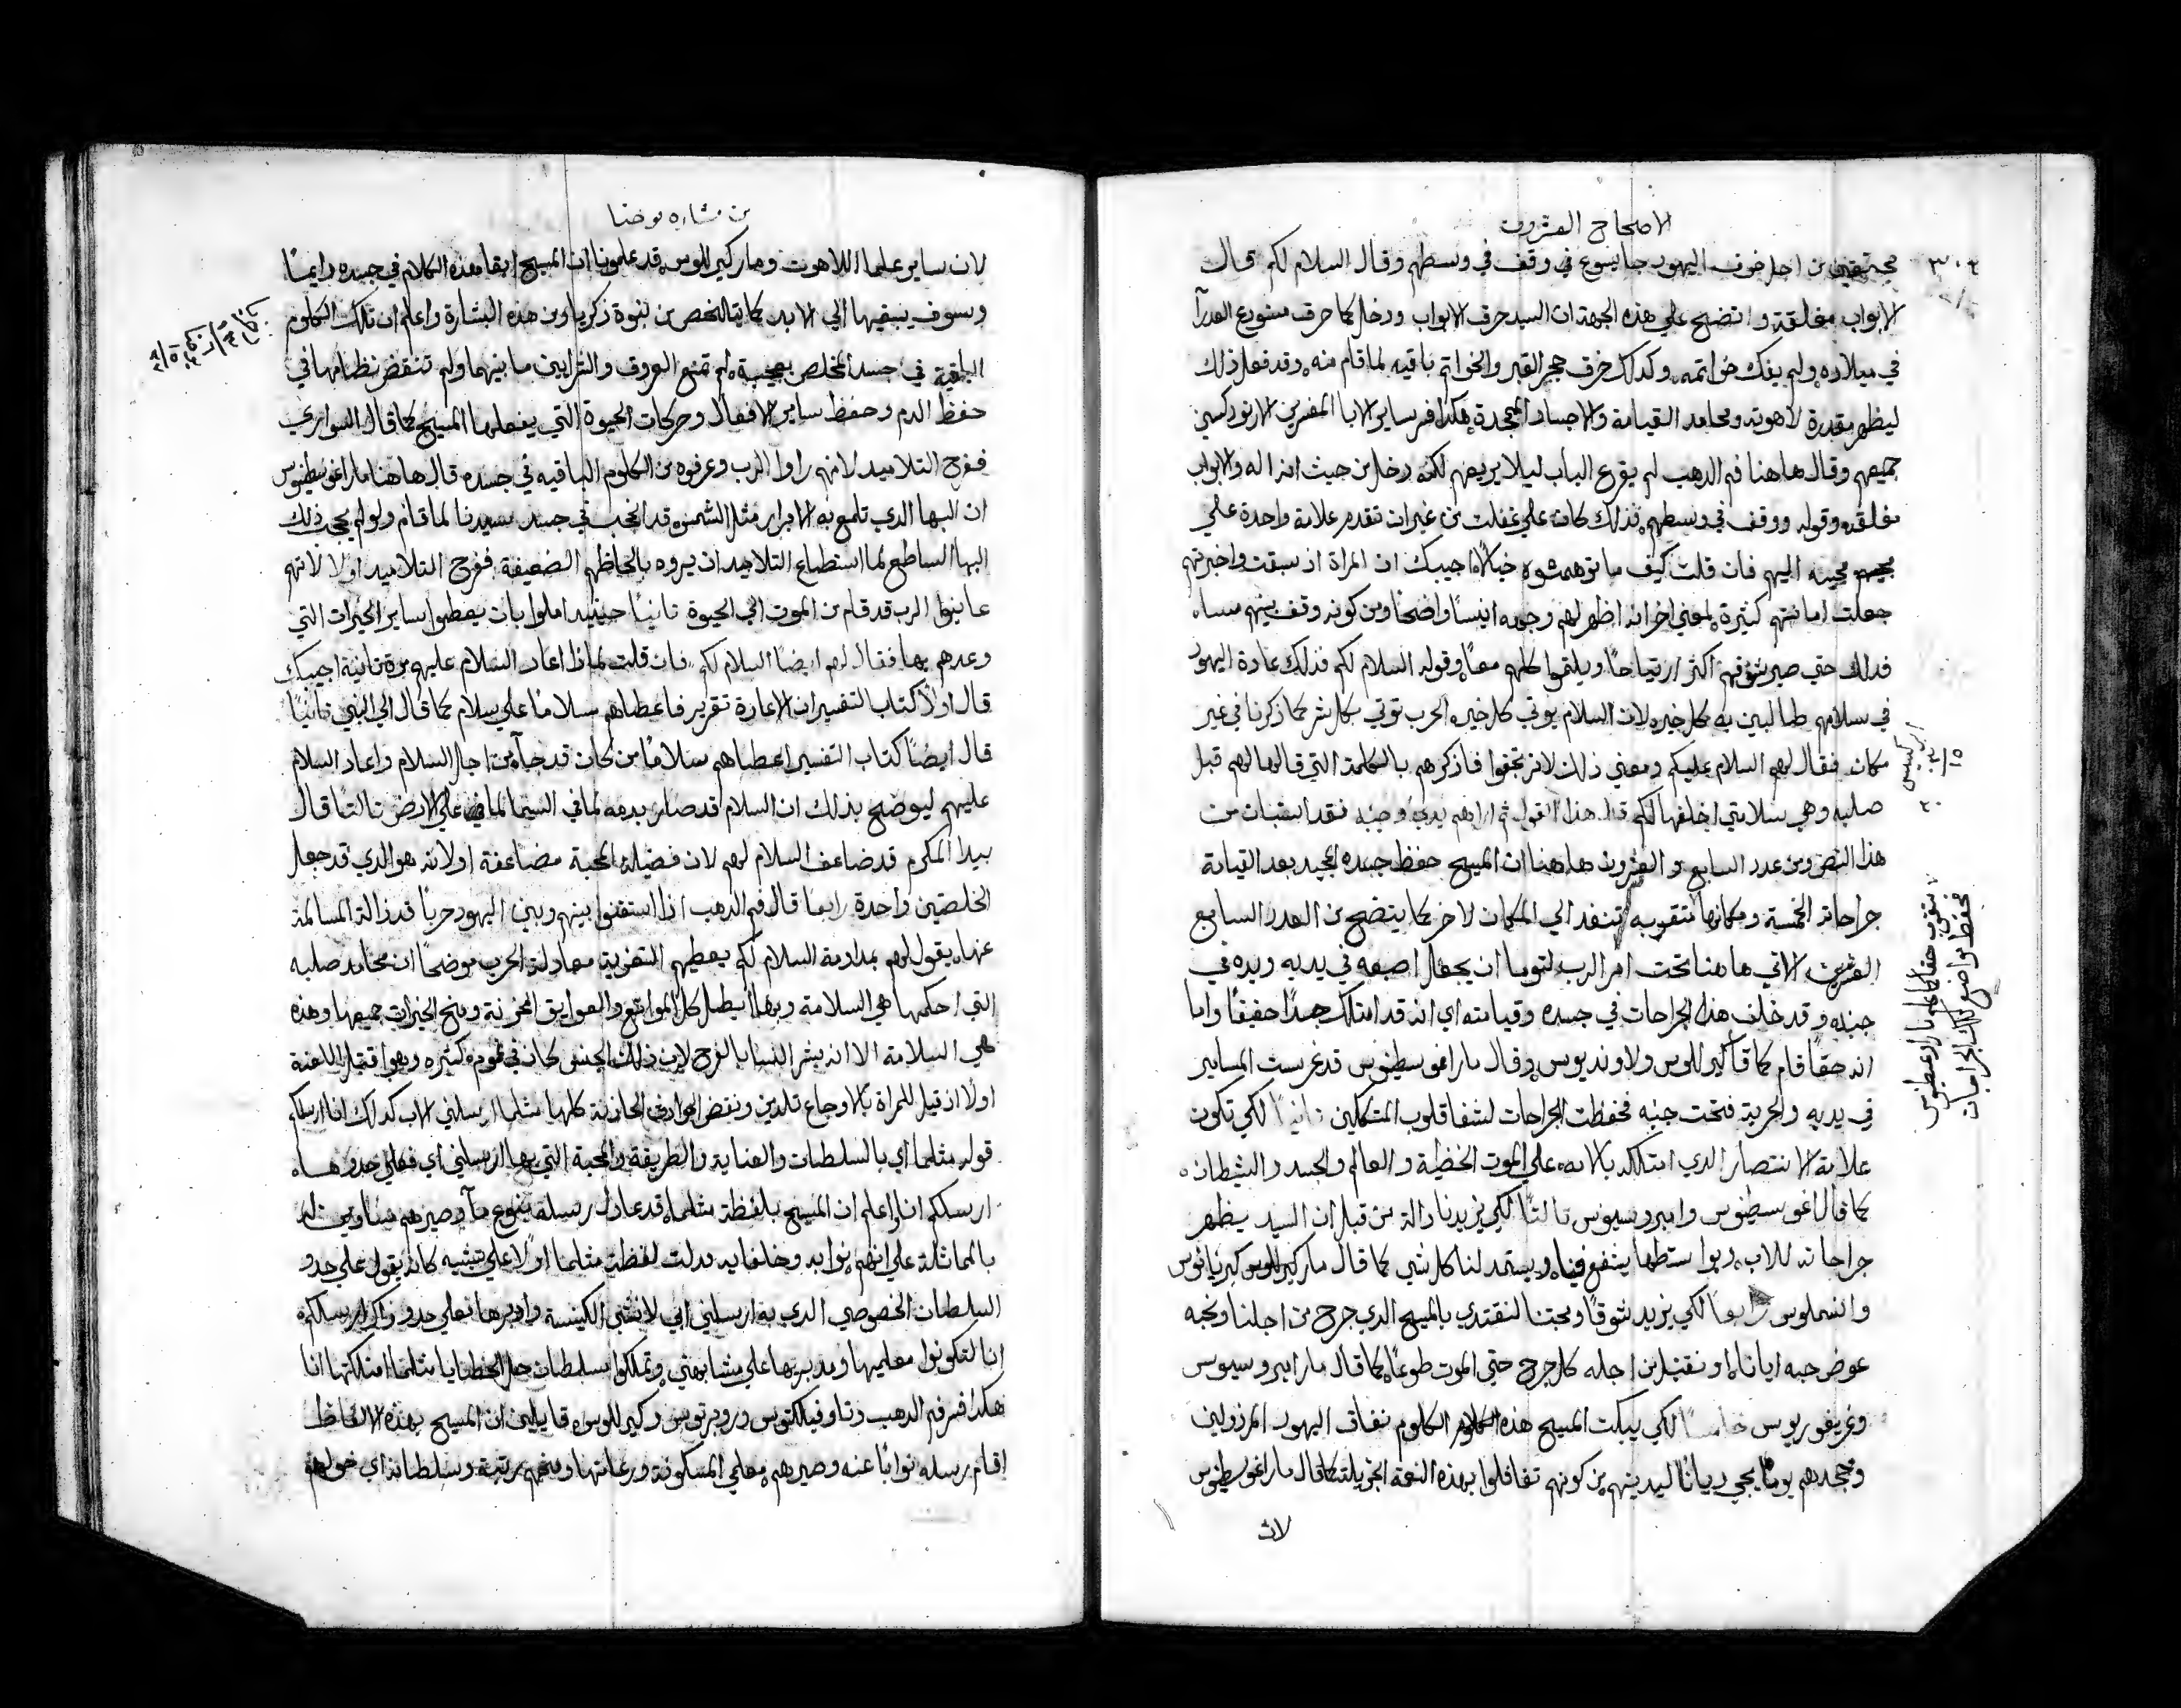 الاصحاح العشرون
مجتمعين من اجل خوف اليهود جا يسوع في وقف في وسطهم وقال السلام لكم قال
الابواب مغلقة واتضح علي هذه الجهة ان السيد خرق الابواب ودخل كما خرق مستودع العدرآ
في ميلاده ولم يفك خواتمه وكدلك خرق حجر القبر والخواتم باقيه لما قام منه وقد فعل ذلك
ليظهر مقدرة لاهوته ومحامد القيامة والاجساد الممجدة هكدا فسر ساير الابا المفسرين الارتودكسين
جميعهم وقال هاهنا فم الدهب لم يقرع الباب ليلا يريعهم لكنه دخل من حيث انه اله والابواب
مغلقه وقوله ووقف في وسطهم فذلك كان علي غفلت من غير ان تقدم علامة واحدة علي
مجيه اليهم فان قلت كيف ما توهمتوه خيالا اجيبك ان المراة اذ سبقت واخبرتهم
جعلت امانتهم كثيرة لمعني اخر انه اظهر لهم وجهه انيسا واضحا ومن كونه وقف بينهم مساه
فدلك حتي صير شوقهم اكثر ارتياحا ويلتقوا كلهم معا وقوله السلام لكم فذلك عادة اليهود
في سلامهم طالبين به كل خير لان السلام يوتي كل خير الحرب توتي بكل شر كما ذكرنا في غير
مكان فقال لهم السلام عليكم ومعني ذلك لا ترتجفوا فاذكرهم بالكلمة التي قالها لهم قبل
صلبه وهي سلامتي اخلفها لكم قال هذا القول ثم اراهم يديه وجنبه فقد استبان من
هذا النص ومن عدد السابع والعشرون هاهنا ان المسيح حفظ جسده المجيد بعد القيامة
جراحاته الخمسة ومكانها مثقوبه تنفد الي المكان لاخر كما يتضح من العدد السابع
العشرين الاتي هاهنا تحت امر الرب لتوما ان يجعل اصبعه في يديه ويده في
جنبه وقد خلف هذه الجراحات في جسده وقيامته اي انه قد امتلك جسدا حقيقا واما
انه حقا قام كما قال كيرللوس ولاونديوس وقال مار اغوسطينوس قد غرست المسامير
في يديه والحربة فتحت جنبه فحفظت الجراحات لشفا قلوب المتكلين ثانيا لكي تكون
علامة الانتصار الدي امتلكه بالامه علي الموت الخطية والعالم والجسد والشيطان
كما قال اغوسطينوس وامبروسيوس ثالثا لكي يزيدنا دالة من قبل ان السيد يظهر
جراحاته للاب وبواسطتها يشفع فينا ويستمد لنا كل شي كما قال مار كيرللوس كبريانوس
وانسلموس رابعا لكي يزيد شوقا ومحبتنا لنقتدي بالمسيح الدي جرح من اجلنا ونحبه
عوض حبه ايانا او نقتبل من اجله كل جرح حتي الموت طوعا كما قال مار امبروسيوس
وغريغوريوس خامسا لكي يبكت المسيح هذه الكلوم نفاق اليهود المردولين
وجحدهم يوما يجي ديانا ليدينهم من كونهم تغافلوا بهذه النعمة الجزيلة كما قال مار اغوسطينوس
لان
من بشاره يوحنا
لان ساير علما اللاهوت ومار كيرللوس قد علمونا ان المسيح ابقا هذه الكلام في جسده دايما
وسوف يبقيها الي الابد كما يتلخص من نبوة زكريا ومن هذه البشارة واعلم ان تلك الكلوم
الباقية في جسد المخلص بعجيبة لم تمنع العروق والشرايين ما بينهما ولم تنقض نظامها في
حفظ الدم وحفظ ساير الافعال وحركات الحيوة التي يفعلها المسيح كما قال السواري
ففرح التلاميد لانهم راوا الرب وعرفوه من الكلوم الباقيه في جسده قال هاهنا مار اغوسطينوس
ان البها الدي تلمع به الابرار مثل الشمس قد انحجب في جسد سيدنا لما قام ولو لم يحجب ذلك
البها الساطع لما استطاع التلاميد ان يروه بالحاظهم الضعيفة ففرح التلاميد اولا لانهم
عاينوا الرب قد قام من الموت الي الحيوة ثانيا حينيد املوا بان يعطوا ساير الخيرات التي
وعدهم بها فقال لهم ايضا السلام لكم فان قلت لماذا اعاد السلام عليهم مرة ثانية اجيبك
قال اولا كتاب التفسير ان الاعادة تقرير فاعطاهم سلاما علي سلام كما قال الي النبي ثانيا
قال ايضا كتاب التفسير اعطاهم سلاما من كان قد جآ من اجل السلام واعاد السلام
عليهم ليوضح بذلك ان السلام قد صار بدمه لما في السما لما في علي الارض ثالثا قال
بيدا المكرم قد ضاعف السلام لهم لان فضيلة المحبة مضاعفة او لانه هو الدي قد جعل
الخلصتين واحدة رابعا قال فم الدهب اذا استقنوا بينهم وبين اليهود حربا قد زالة المسالمة
عنها يقول لهم بمداومة السلام لكم يعطيهم التعزية معادلة الحرب موضحا ان محامد صلبه
التي احكمها هي السلامة وبها ابطل كل الموانع والعوايق المحزنة ومنح الخيرات جميعها وهذه
هي السلامة الا انه بشر النسا بالفرح لان ذلك الجنس كان في غموم كثيره وهو اقتبل اللعنة
اولا اذ قيل للمراة بالاوجاع تلدين ونقض العوارض الحازنة كلها مثلما ارسلني الاب كدلك انا ارسلكم
قوله مثلما اي بالسلطان والعناية والطريقة والمحبة التي بها ارسلني اي فعلي حدوها
ارسلكم انا واعلم ان المسيح بلفظة مثلما قد عادل رسله بنوع مآ وصيرهم مساوين له
بالمماثلة علي انهم نوابه وخلفايه ودلت لفظت مثلما اولا علي تشبيه كانه يقول علي حدو
السلطان الخصوصي الدي به ارسلني ابي لانشي الكنيسة وادبرها فعلي حدو ذاك ارسلكم
انا لتكونوا معلميها ومدبريها علي مشابهتي وتملكوا سلطان حل الخطايا مثلما امتلكتها انا
هكدا فسر فم الدهب وتاوفيلكتوس وروبرتوس وكيرللوس قايلين ان المسيح بهذه الالفاظ
اقام رسله نوابا عنه وصيرهم معلمي المسكونة ورعاتها ومنحهم رتبة وسلطانه اي خولهم